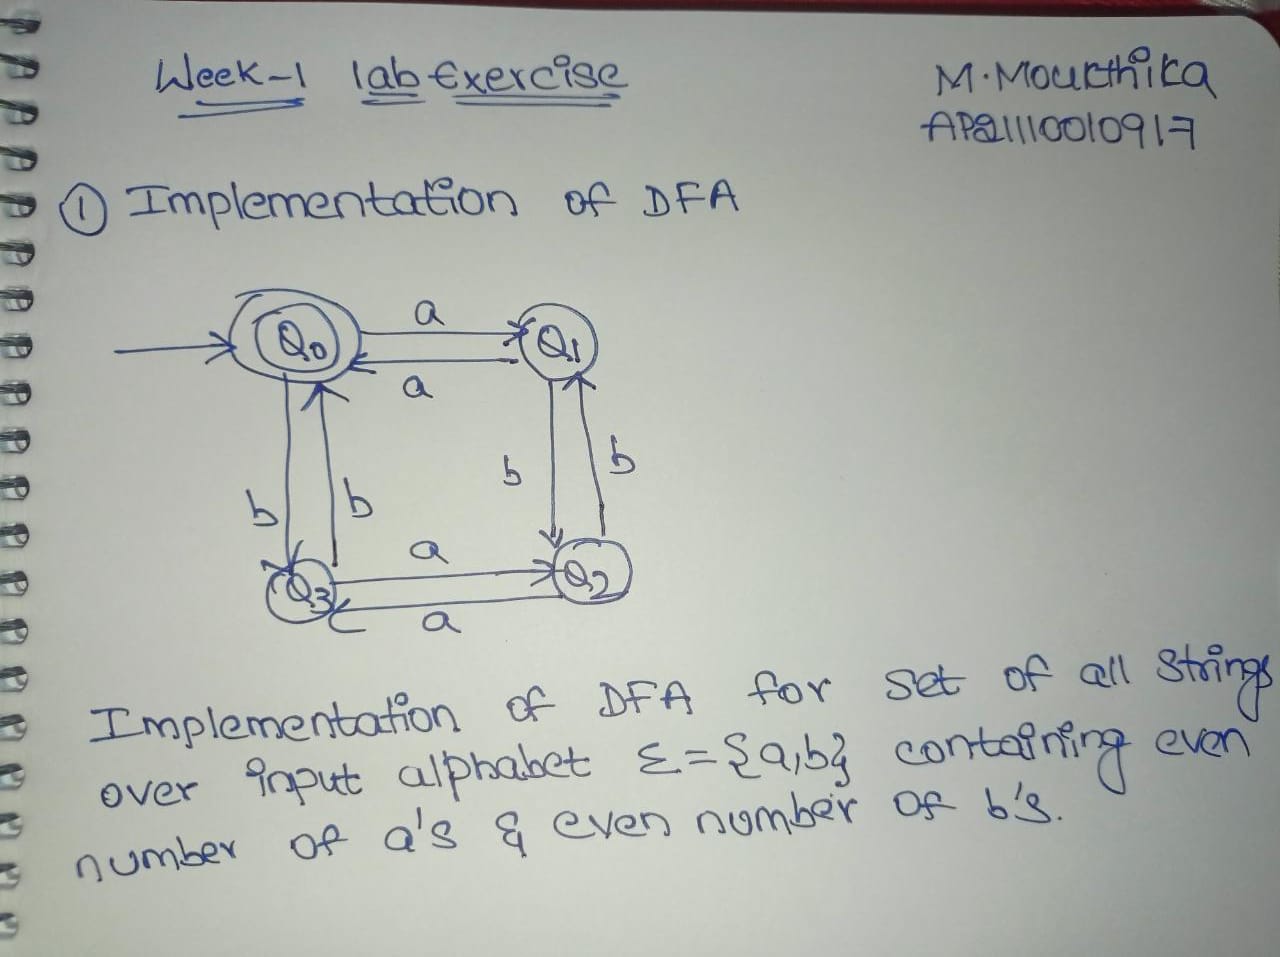 Week-1 lab Exercise
M.Mourthika
AP21110010917
① Implementation of DFA
Q0 a Q1
a
b b b b
Q3 a Q2
a
Implementation of DFA for set of all strings
over input alphabet Σ={a,b} containing even
number of a's & even number of b's.